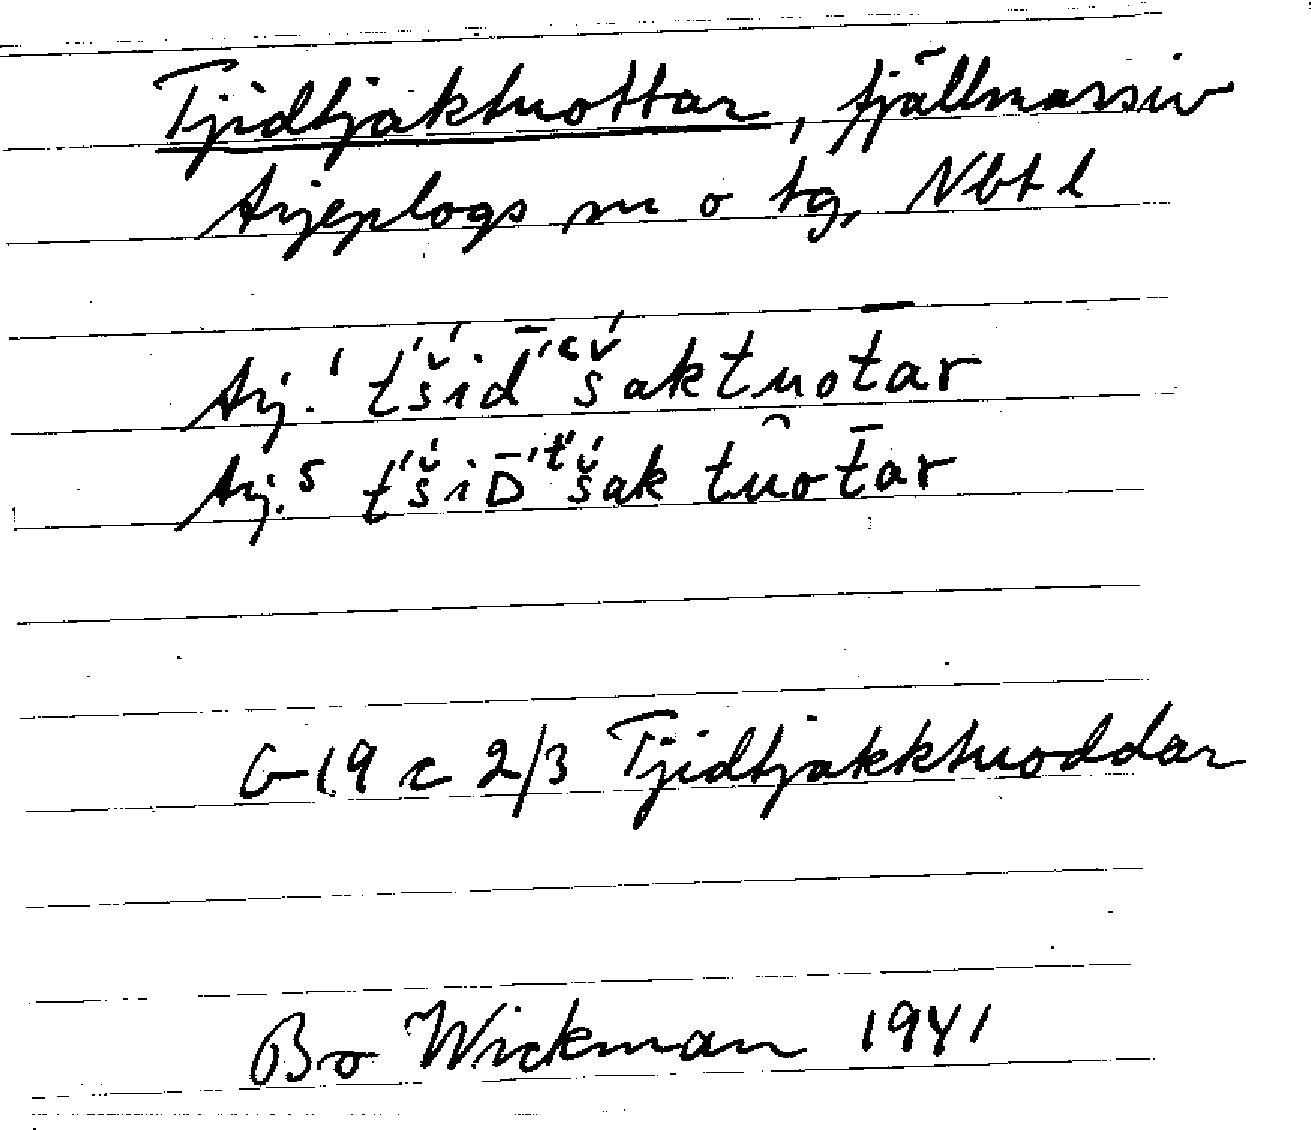 Tjidtjaktuottar, fjällmassiv
Arjeplogs sn o tg, Nbt l
Arj.¹ t́š́id̄́ᶜš́aktuot̄ar
Arj.⁵ t́š́iD̄́ᵗ́š́ak tu̯ot̄ar
G-19 c 2/3 Tjidtjakktuoddar
Bo Wickman 1941